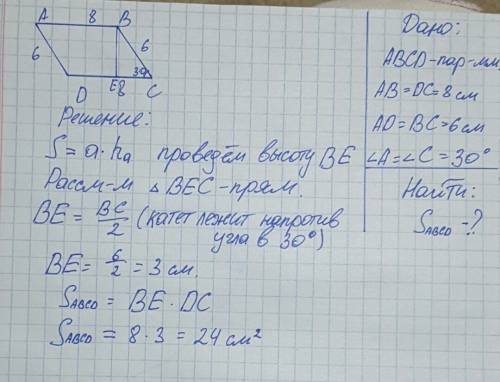 A 8 B
6 6
30°
D E 8 C
Решение:
S = a · hₐ проведём высоту BE
Рассм-м △ BEC - прям.
BE = BC/2 (катет лежит напротив
угла в 30°)
BE = 6/2 = 3 см.
S ABCD = BE · DC
S ABCD = 8 · 3 = 24 см²
Дано:
ABCD - пар-мм
AB = DC = 8 см
AD = BC = 6 см
∠A = ∠C = 30°
Найти:
S ABCD - ?